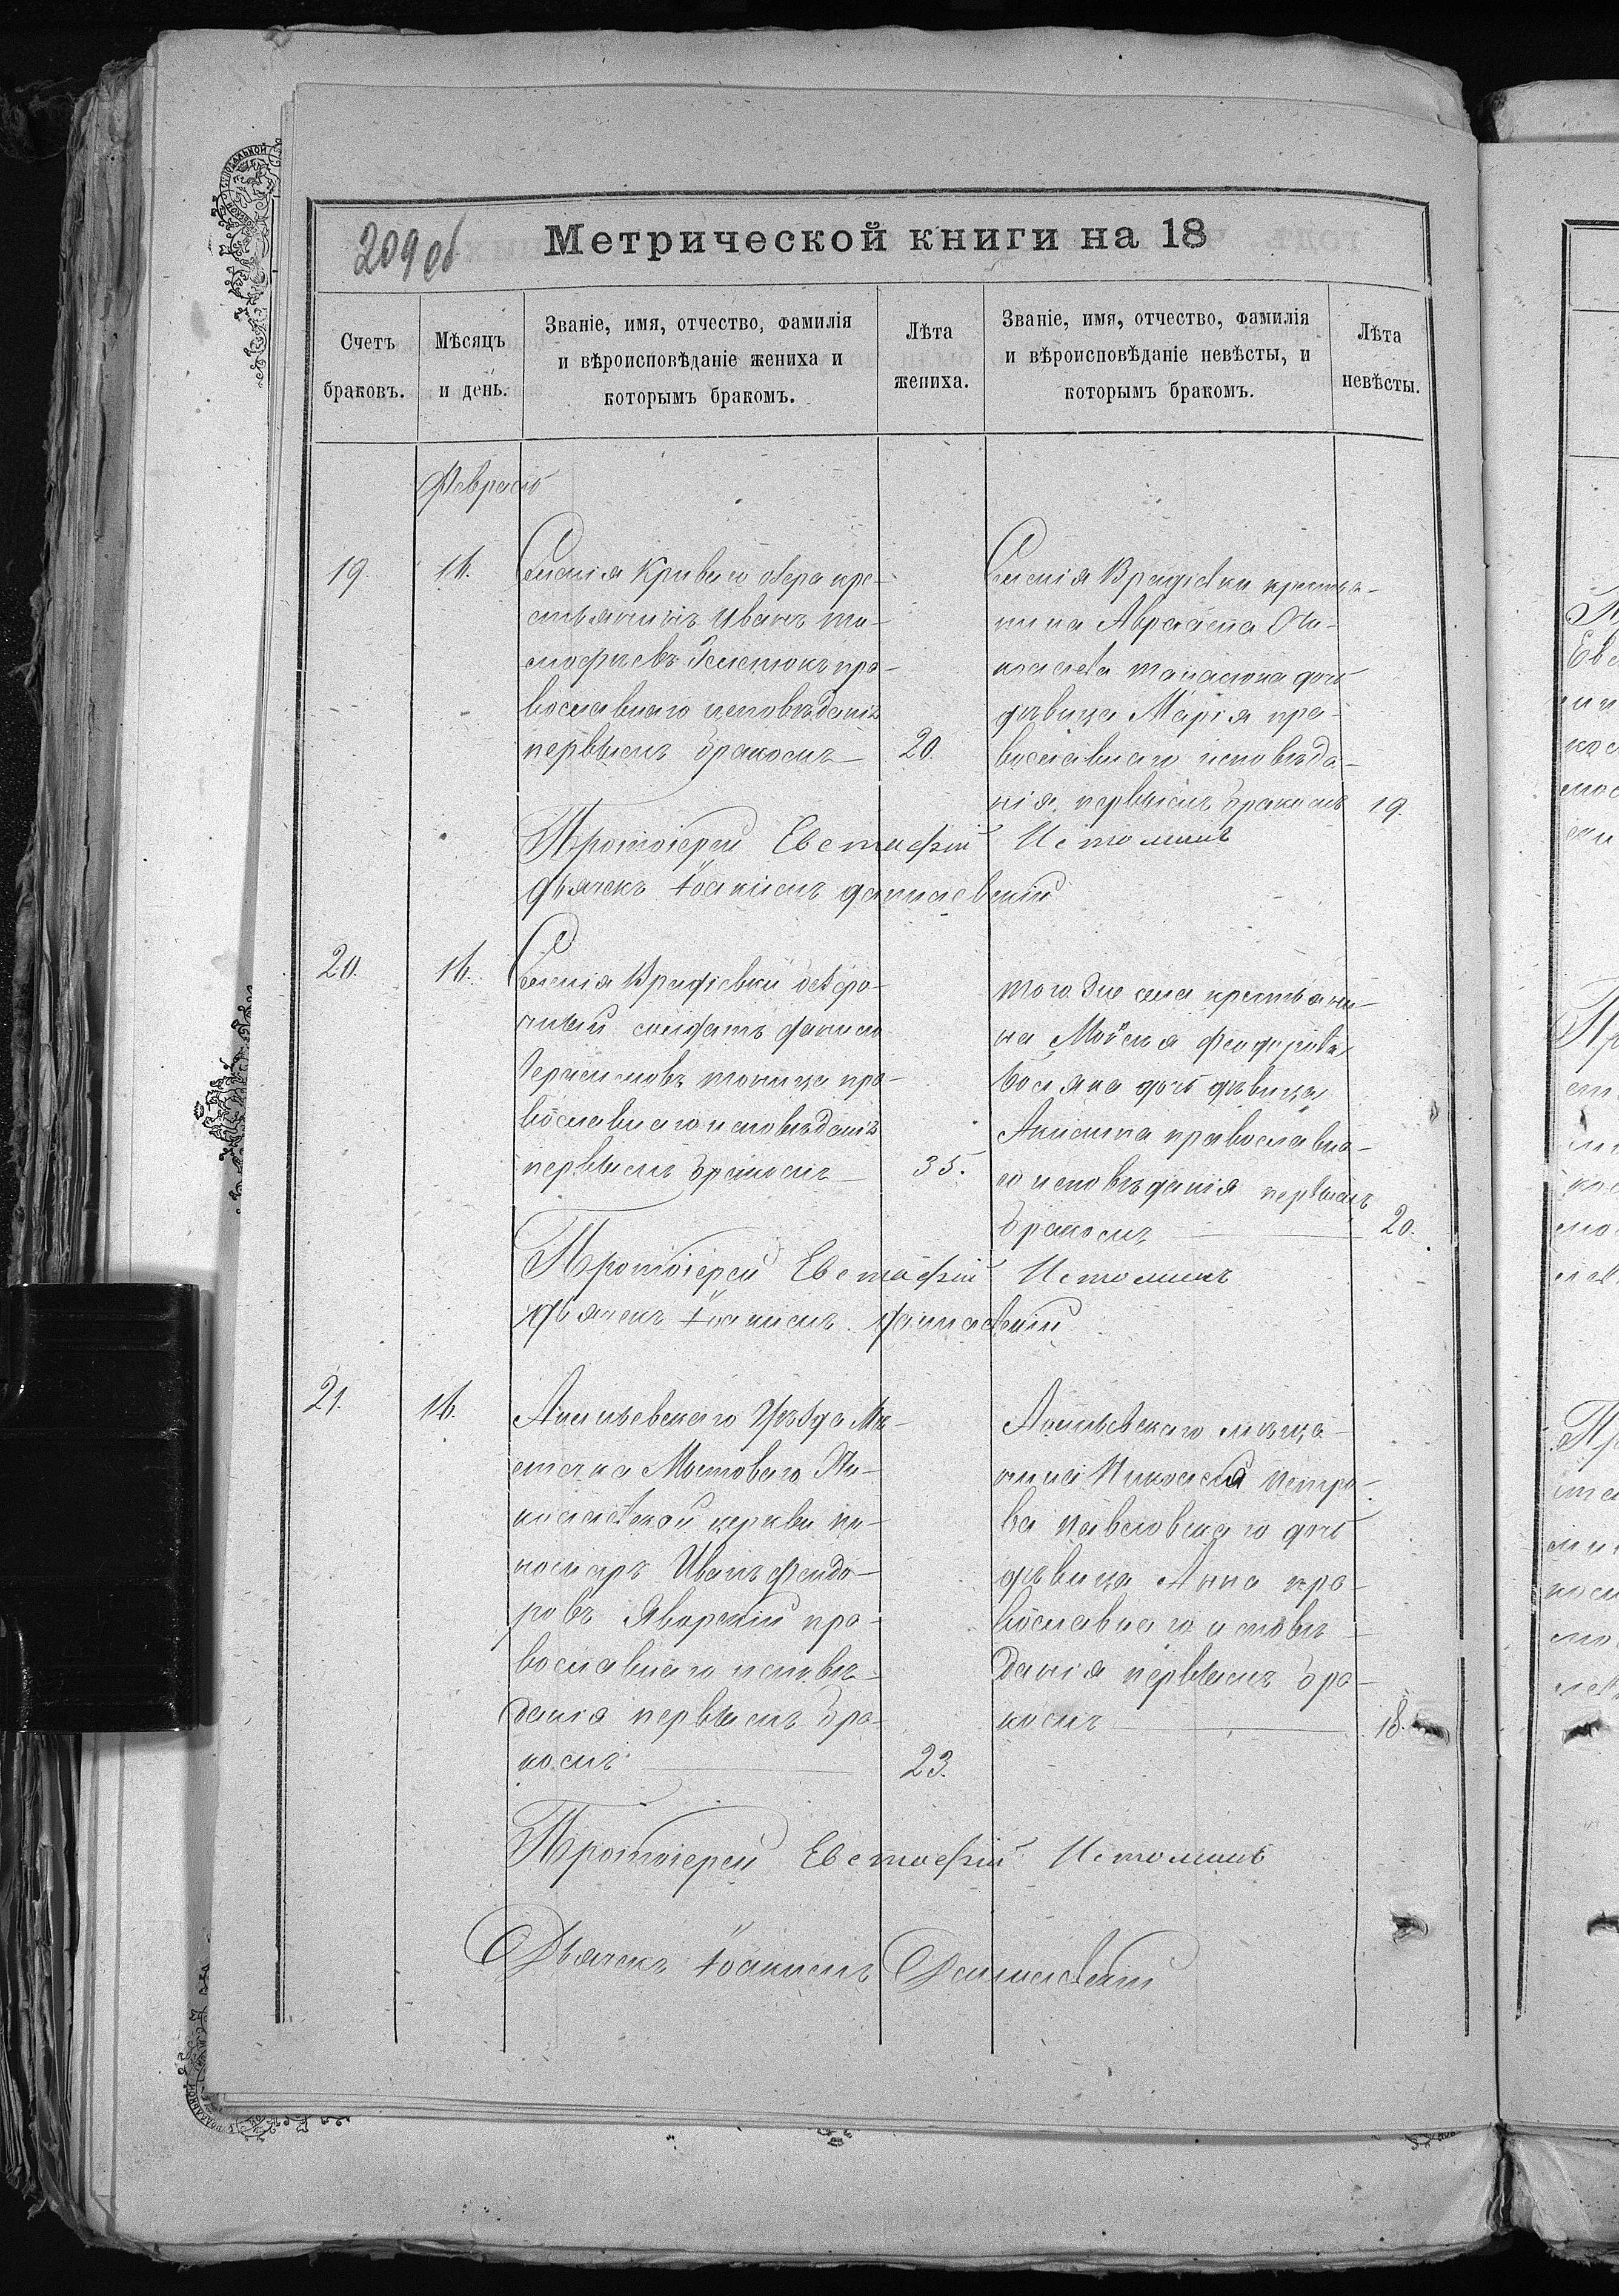 209 об
Метрической книги на 18
Счетъ
браковъ.
Мѣсяцъ
и день.
Званіе, имя, отчество, фамилія
и вѣроисповѣданіе жениха и
которымъ бракомъ.
Лѣта
жениха.
Званіе, имя, отчество, фамилія
и вѣроисповѣданіе невѣсты, и
которымъ бракомъ.
Лѣта
невѣсты.
Февраль
19.
16.
Кривого озера кре-
стьянинъ Иванъ Ти-
мофѣевъ про-
вославнаго исповѣданія
первымъ бракомъ
20.
крестья-
нина
дочь
дѣвица Марія пра-
вославнаго исповѣда-
нія первымъ бракомъ
19.
Протоіерей Евстафій Истоминъ
Дьячекъ Іоакимъ
20.
16.
солдатъ Данило
Герасимовъ про-
вославнаго исповѣданія
первымъ бракомъ
35.
Того же села крестьяни-
на Мойсея Феодорова
дочь дѣвица
Акилина православна-
го исповѣданія первымъ
бракомъ
20.
Протоіерей Евстафій Истоминъ
Дьячекъ Іоакимъ
21.
16.
Ананьевскаго Уѣзда Мѣ-
стечка Мостоваго Ни-
колаевской церкви по-
номарь Иванъ Феодо-
ровъ Яворскій про-
вославнаго исповѣ-
данія первымъ бра-
комъ
23.
Ананьевскаго мѣща-
нина Николая Петро-
ва Павловскаго дочь
дѣвица Анна пра-
вославнаго исповѣ-
данія первымъ бра-
комъ
18.
Протоіерей Евстафій Истоминъ
Дьячекъ Іоакимъ